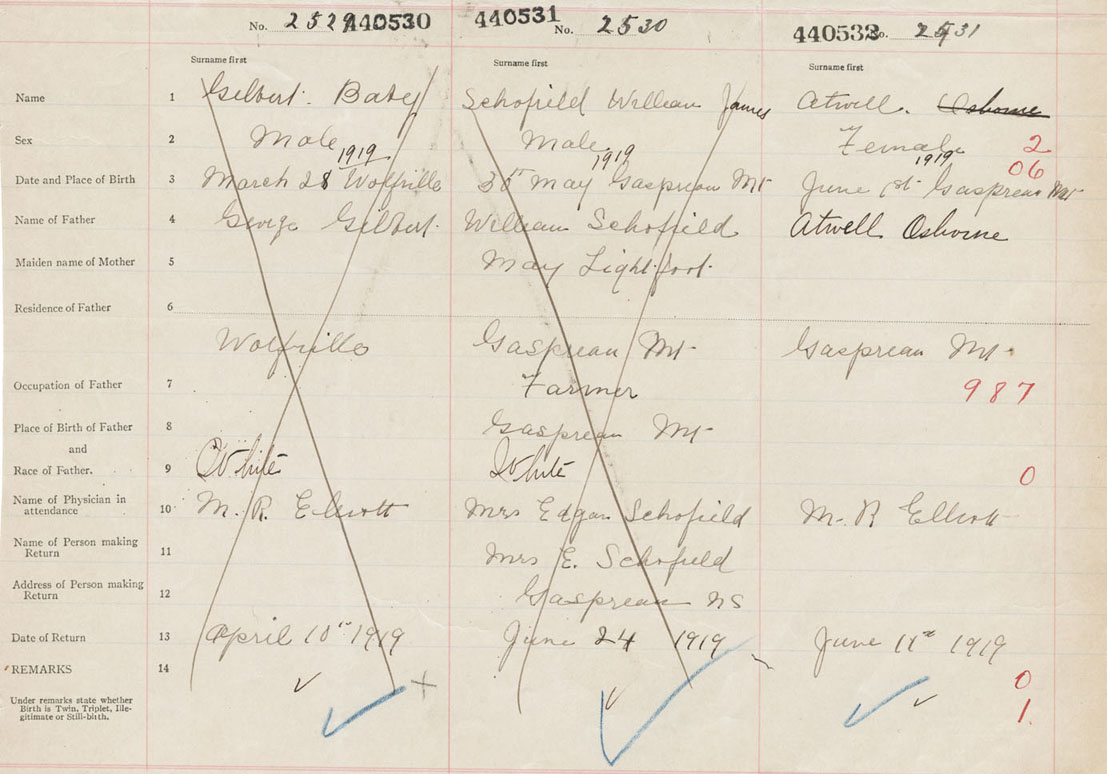 No. 2529 440530 440531 No. 2530 440532 No. 2531
Surname first Surname first Surname first
Name 1 Gilbert. Baby Schofield William James Atwell. Osborne
Sex 2 Male Male Female 2
1919 1919 1919 06
Date and Place of Birth 3 March 28 Wolfville 30th May Gasprean Mt June 1st Gasprean Mt
Name of Father 4 George Gilbert. William Schofield Atwell Osborne
Maiden name of Mother 5 May Lightfoot.
Residence of Father 6
Wolfville Gasprean Mt. Gasprean Mt.
Occupation of Father 7 Farmer 987
Place of Birth of Father 8 Gasprean Mt
and
Race of Father. 9 White White 0
Name of Physician in
attendance 10 M. R. Elliott Mrs Edgar Schofield M. R Elliott
Name of Person making
Return 11 Mrs E. Schofield
Address of Person making
Return 12 Gasprean NS
Date of Return 13 April 10th 1919 June 24 1919 June 11th 1919
REMARKS 14 0
Under remarks state whether
Birth is Twin, Triplet, Ille-
gitimate or Still-birth. 1.